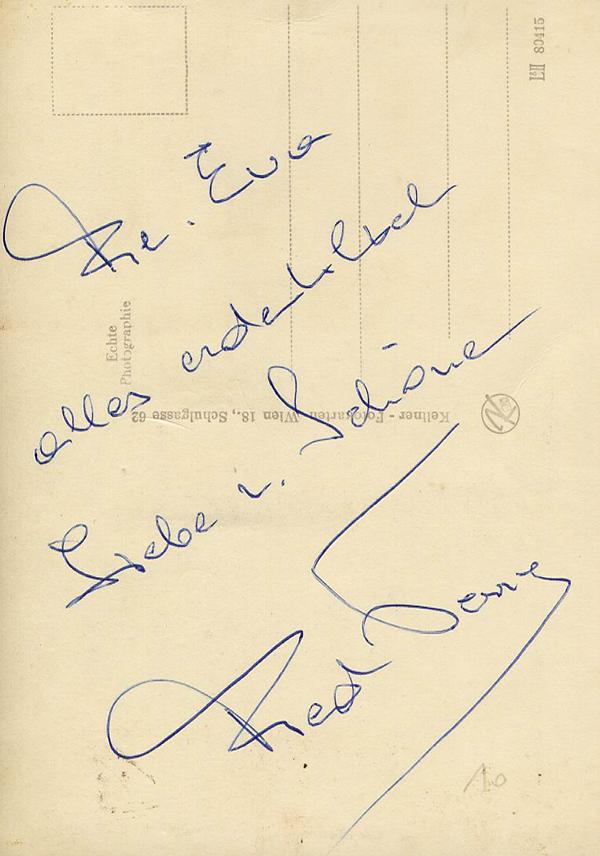 Für Eva
alles erdenklich
Liebe u. Schöne
Fred
Echte
Photographie
Kellner - Fotokarten, Wien 18., Schulgasse 62
80415